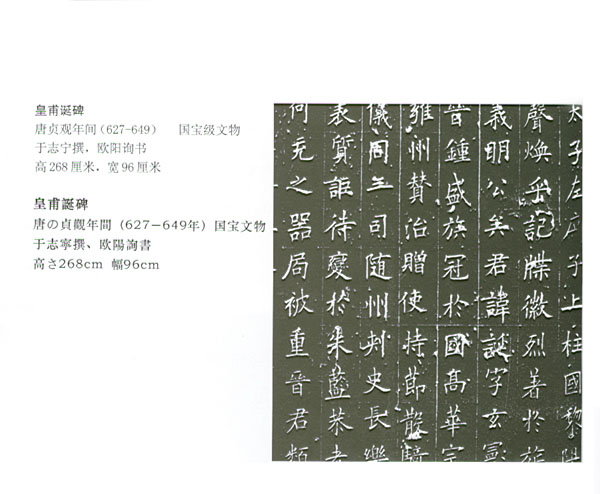 皇甫诞碑
唐贞观年间（627-649） 国宝级文物
于志宁撰，欧阳询书
高268厘米，宽96厘米
皇甫誕碑
唐の貞觀年間（627－649年）国宝文物
于志寧撰、欧陽詢書
高さ268cm 幅96cm
太子左庶子上柱國黎陽
聲煥乎記牒徽烈著於旂
義明公矣君諱誕字玄憲
晉鍾盛族冠於國高華宗
雍州贊治贈使持節散騎
儀同三司随州刺史長樂
表質詎待變於朱藍恭孝
何充之器局被重晉君類